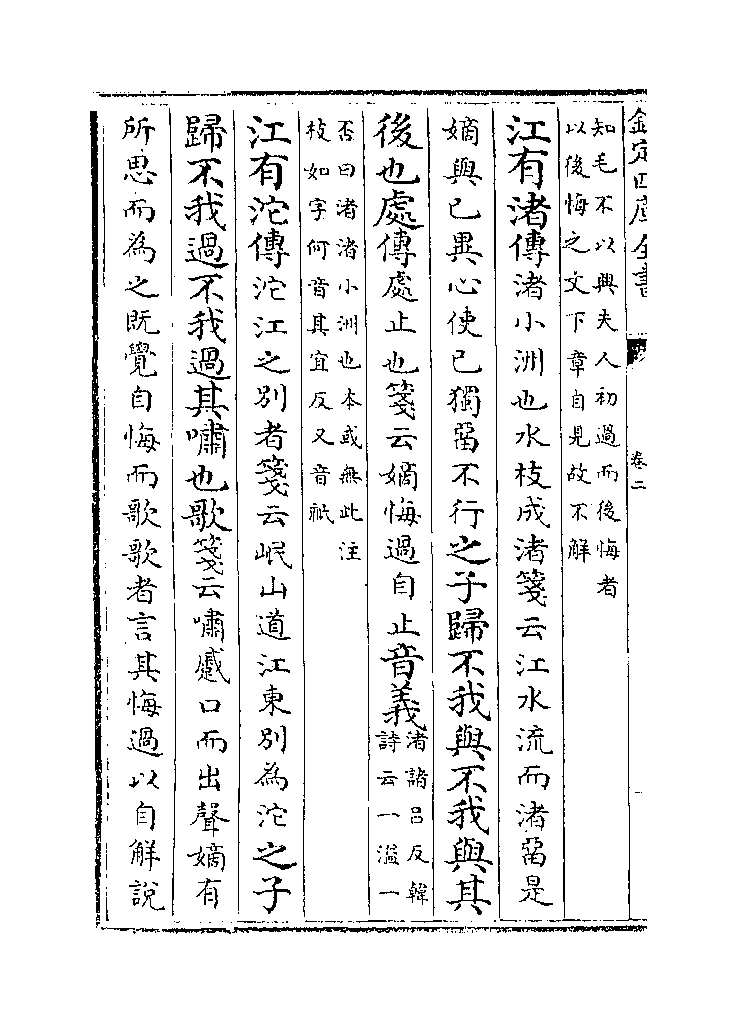 欽定四庫全書
卷二
知毛不以興夫人初過而後悔者
以後悔之文下章自見故不解
江有渚傳渚小洲也水枝成渚箋云江水流而渚畱是
嫡與己異心使己獨畱不行之子歸不我與不我與其
後也處傳處止也箋云嫡悔過自止音義渚諸吕反韓
詩云一溢一
否曰渚渚小洲也本或無此注
枝如字何音其宜反又音祇
江有沱傳沱江之別者箋云岷山道江東別為沱之子
歸不我過不我過其嘯也歌箋云嘯蹙口而出聲嫡有
所思而為之既覺自悔而歌歌者言其悔過以自解說